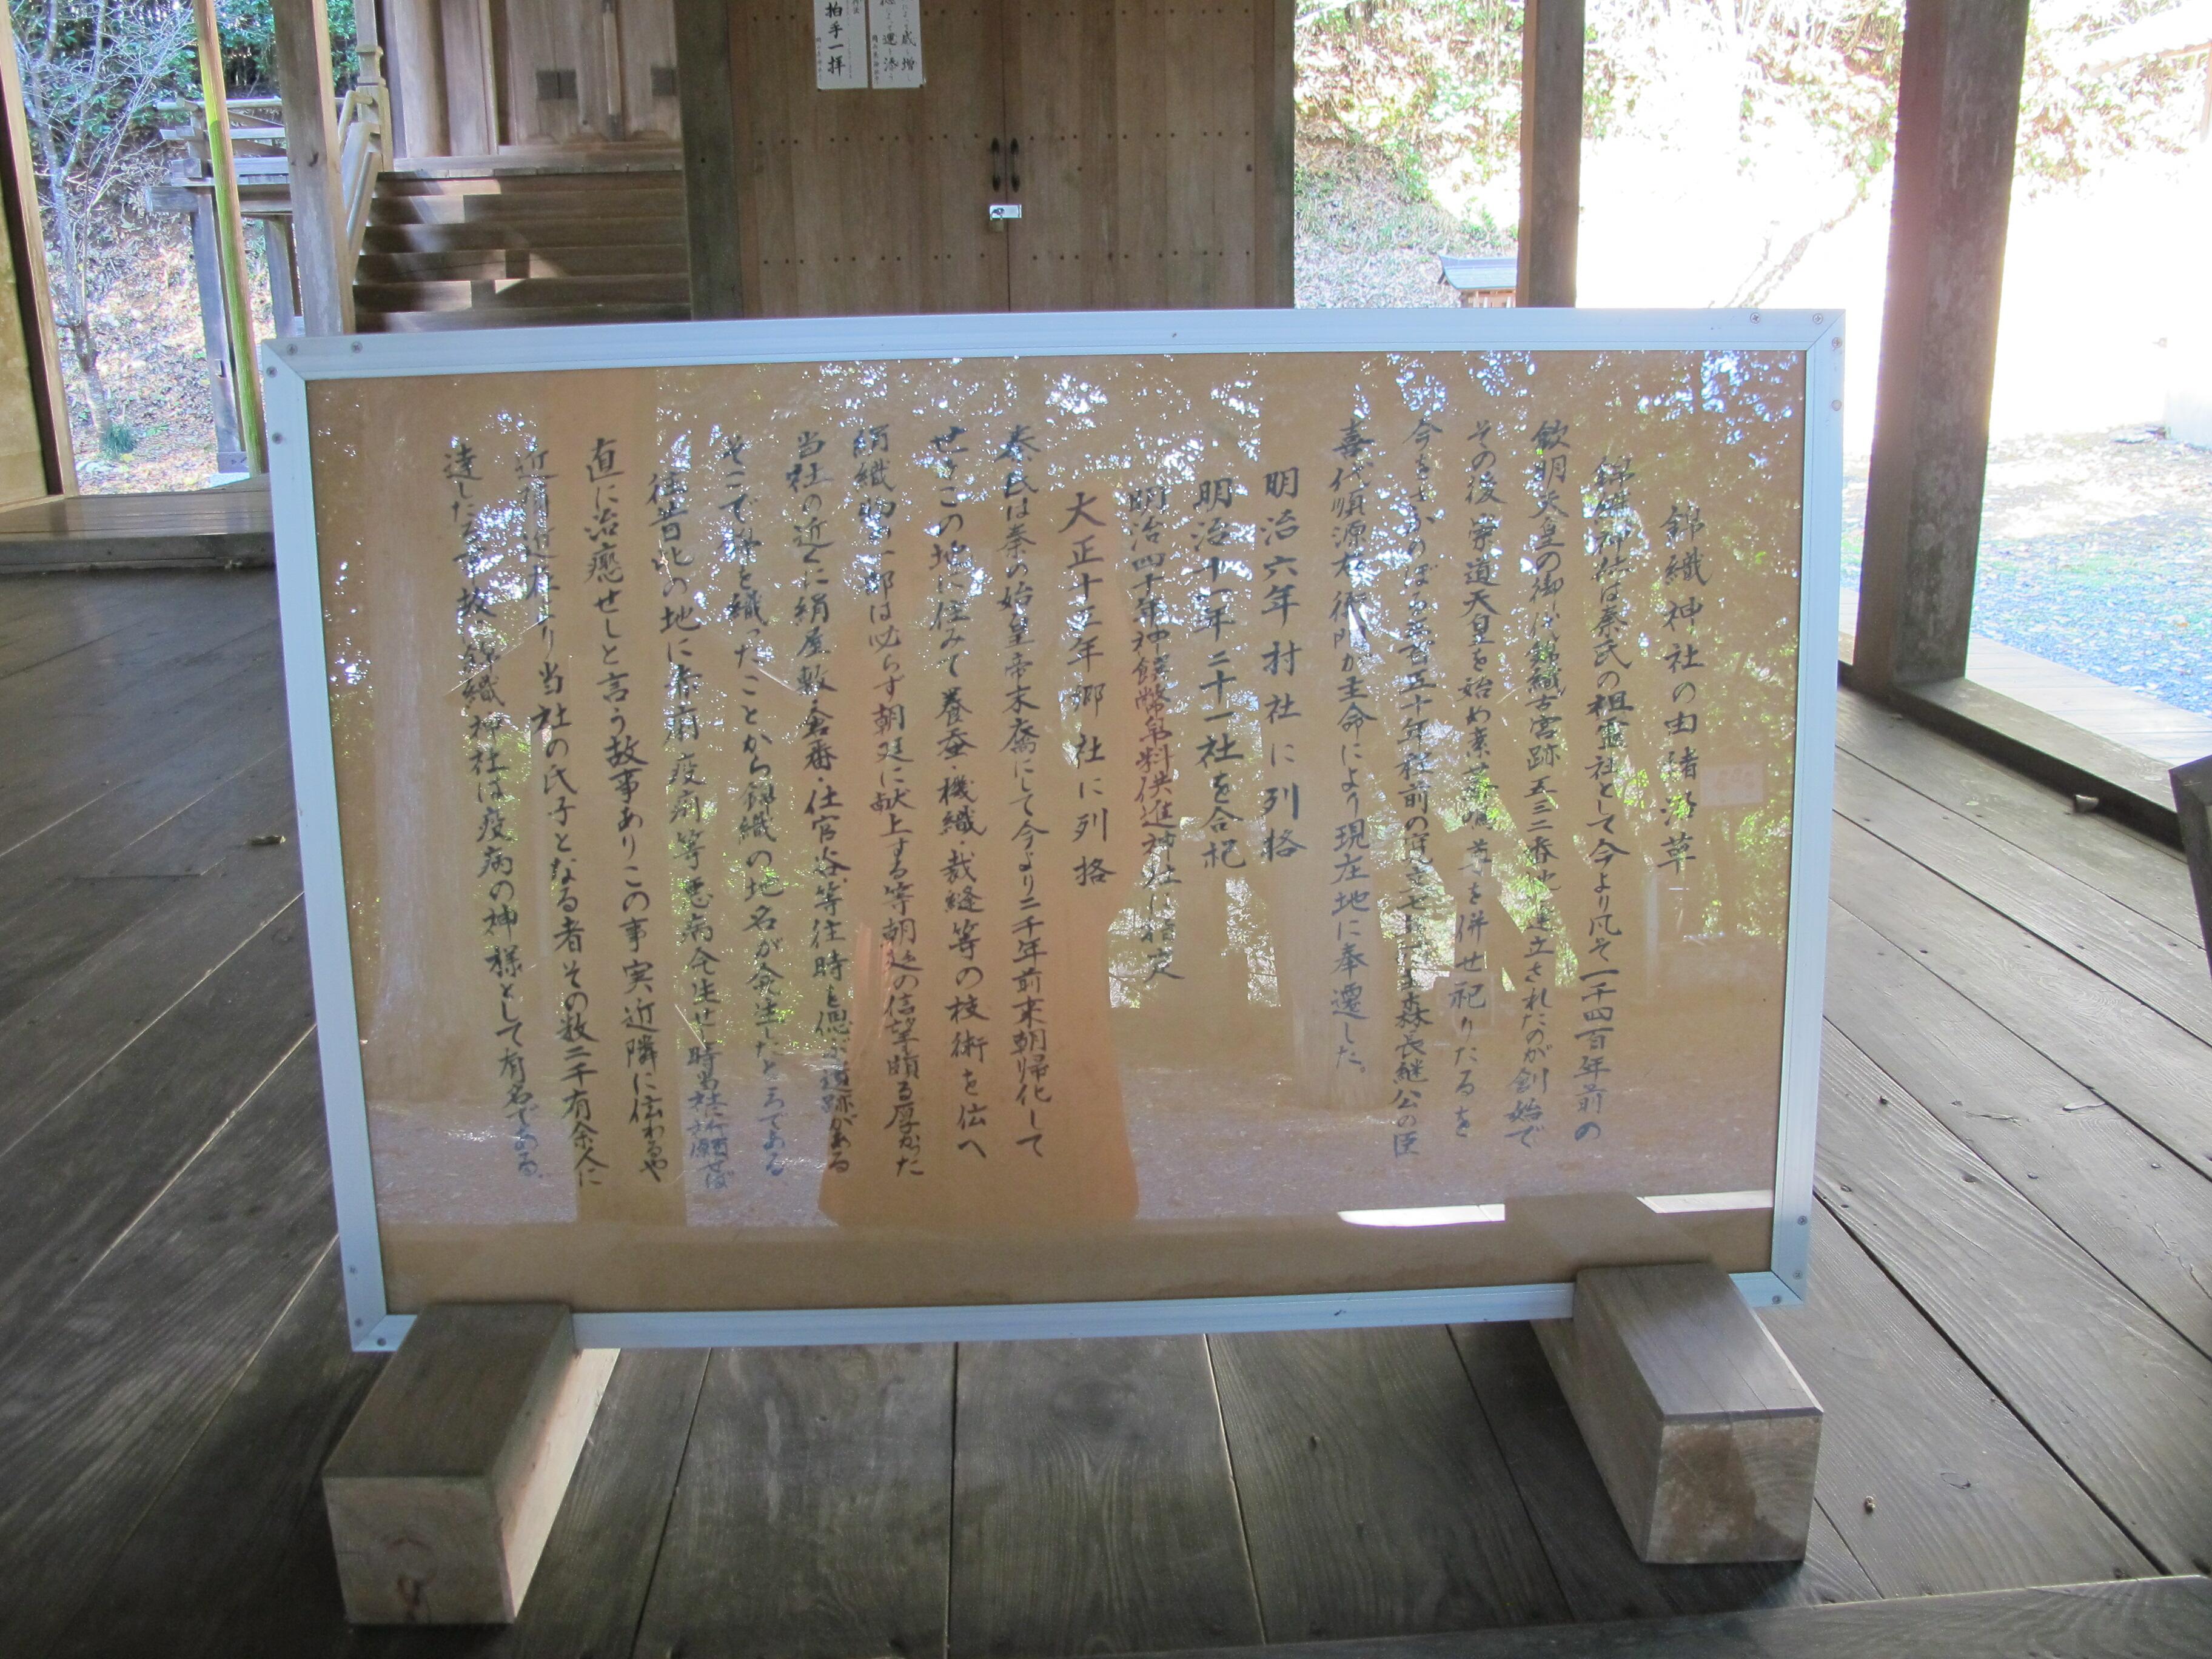 錦織神社の由緒沿革
錦織神社は秦氏の祖霊社として今より凡そ一千四百年前の
欽明天皇の御代錦織古宮跡五三二番地に建立されたのが創始で
その後崇道天皇を始め素荼嗚尊を併せ祀りたるを
今をさかのぼる 百五十年程前の 主森長継公の臣
喜代順源右衛門が主命により現在地に奉遷した。
明治六年村社に列格
明治十一年二十一社を合祀
明治四十年神饌幣帛料供進神社に指定
大正十五年郷社に列格
秦氏は秦の始皇帝末裔にして今より二千年前来朝帰化して
せりこの地に住みて養蚕・機織・裁縫等の技術を伝へ
絹織物の一部は必らず朝廷に献上する等朝廷の信望頗る厚かった
当社の近くに絹屋敷・倉番・仕官谷等往時を偲ぶ遺跡がある
そこで錦を織ったことから錦織の地名が発生したところである
往昔此の地に赤痢疫痢等悪病発生せし時当社に祈願せば
直に治癒せしと言う故事ありこの事実近隣に伝わるや
近郷近在より当社の氏子となる者その数二千有余人に
達したる事故、錦織神社は疫病の神様として有名である。
拍手一拝